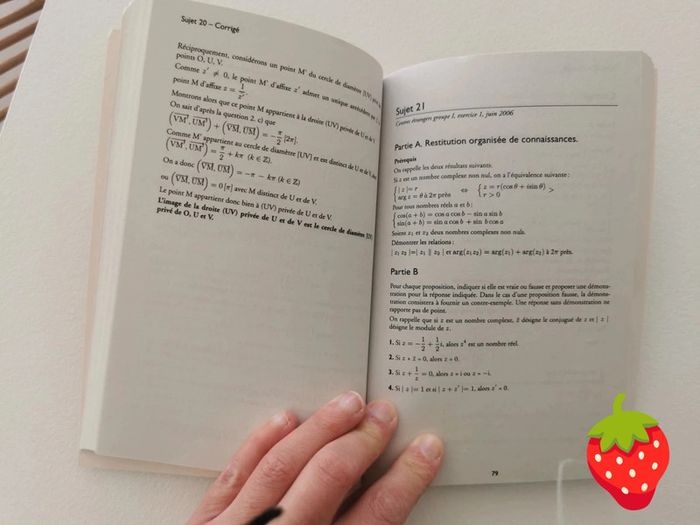 Sujet 20 – Corrigé
Réciproquement, considérons un point M' du cercle de diamètre [UV] privé de
points O, U, V.
Comme z' ≠ 0, le point M' d'affixe z' admet un unique antécédent
point M d'affixe z = 1/z'.
Montrons alors que ce point M appartient à la droite (UV) privée de U et de V.
On sait d'après la question 2. c) que
(VM', UM') + (VM, UM) = −π/2 [2π].
Comme M' appartient au cercle de diamètre [UV] et est distinct de U et de V,
(VM', UM') = π/2 + kπ (k ∈ Z)
On a donc (VM, UM) = −π − kπ (k ∈ Z)
ou (VM, UM) = 0[π] avec M distinct de U et de V.
Le point M appartient donc bien à (UV) privée de U et de V.
L'image de la droite (UV) privée de U et de V est le cercle de diamètre [UV]
privé de O, U et V.
Sujet 21
Centres étrangers groupe I, exercice 1, juin 2006
Partie A. Restitution organisée de connaissances.
Prérequis
On rappelle les deux résultats suivants.
Si z est un nombre complexe non nul, on a l'équivalence suivante :
{ |z| = r ⇔ { z = r(cos θ + i sin θ) >
{ arg z = θ à 2π près { r > 0
Pour tous nombres réels a et b :
{ cos(a + b) = cos a cos b − sin a sin b
{ sin(a + b) = cos a sin b + sin b cos a
Soient z1 et z2 deux nombres complexes non nuls.
Démontrer les relations :
| z1 z2 |=| z1 || z2 | et arg(z1 z2) = arg(z1) + arg(z2) à 2π près.
Partie B
Pour chaque proposition, indiquez si elle est vraie ou fausse et proposer une démons-
tration pour la réponse indiquée. Dans le cas d'une proposition fausse, la démons-
tration consistera à fournir un contre-exemple. Une réponse sans démonstration ne
rapporte pas de point.
On rappelle que si z est un nombre complexe, z̄ désigne le conjugué de z et | z |
désigne le module de z.
1. Si z = −1/2 + 1/2 i, alors z⁴ est un nombre réel.
2. Si z + z̄ = 0, alors z = 0.
3. Si z + 1/z = 0, alors z = i ou z = −i.
4. Si | z |= 1 et si | z + z' |= 1, alors z' = 0.
79